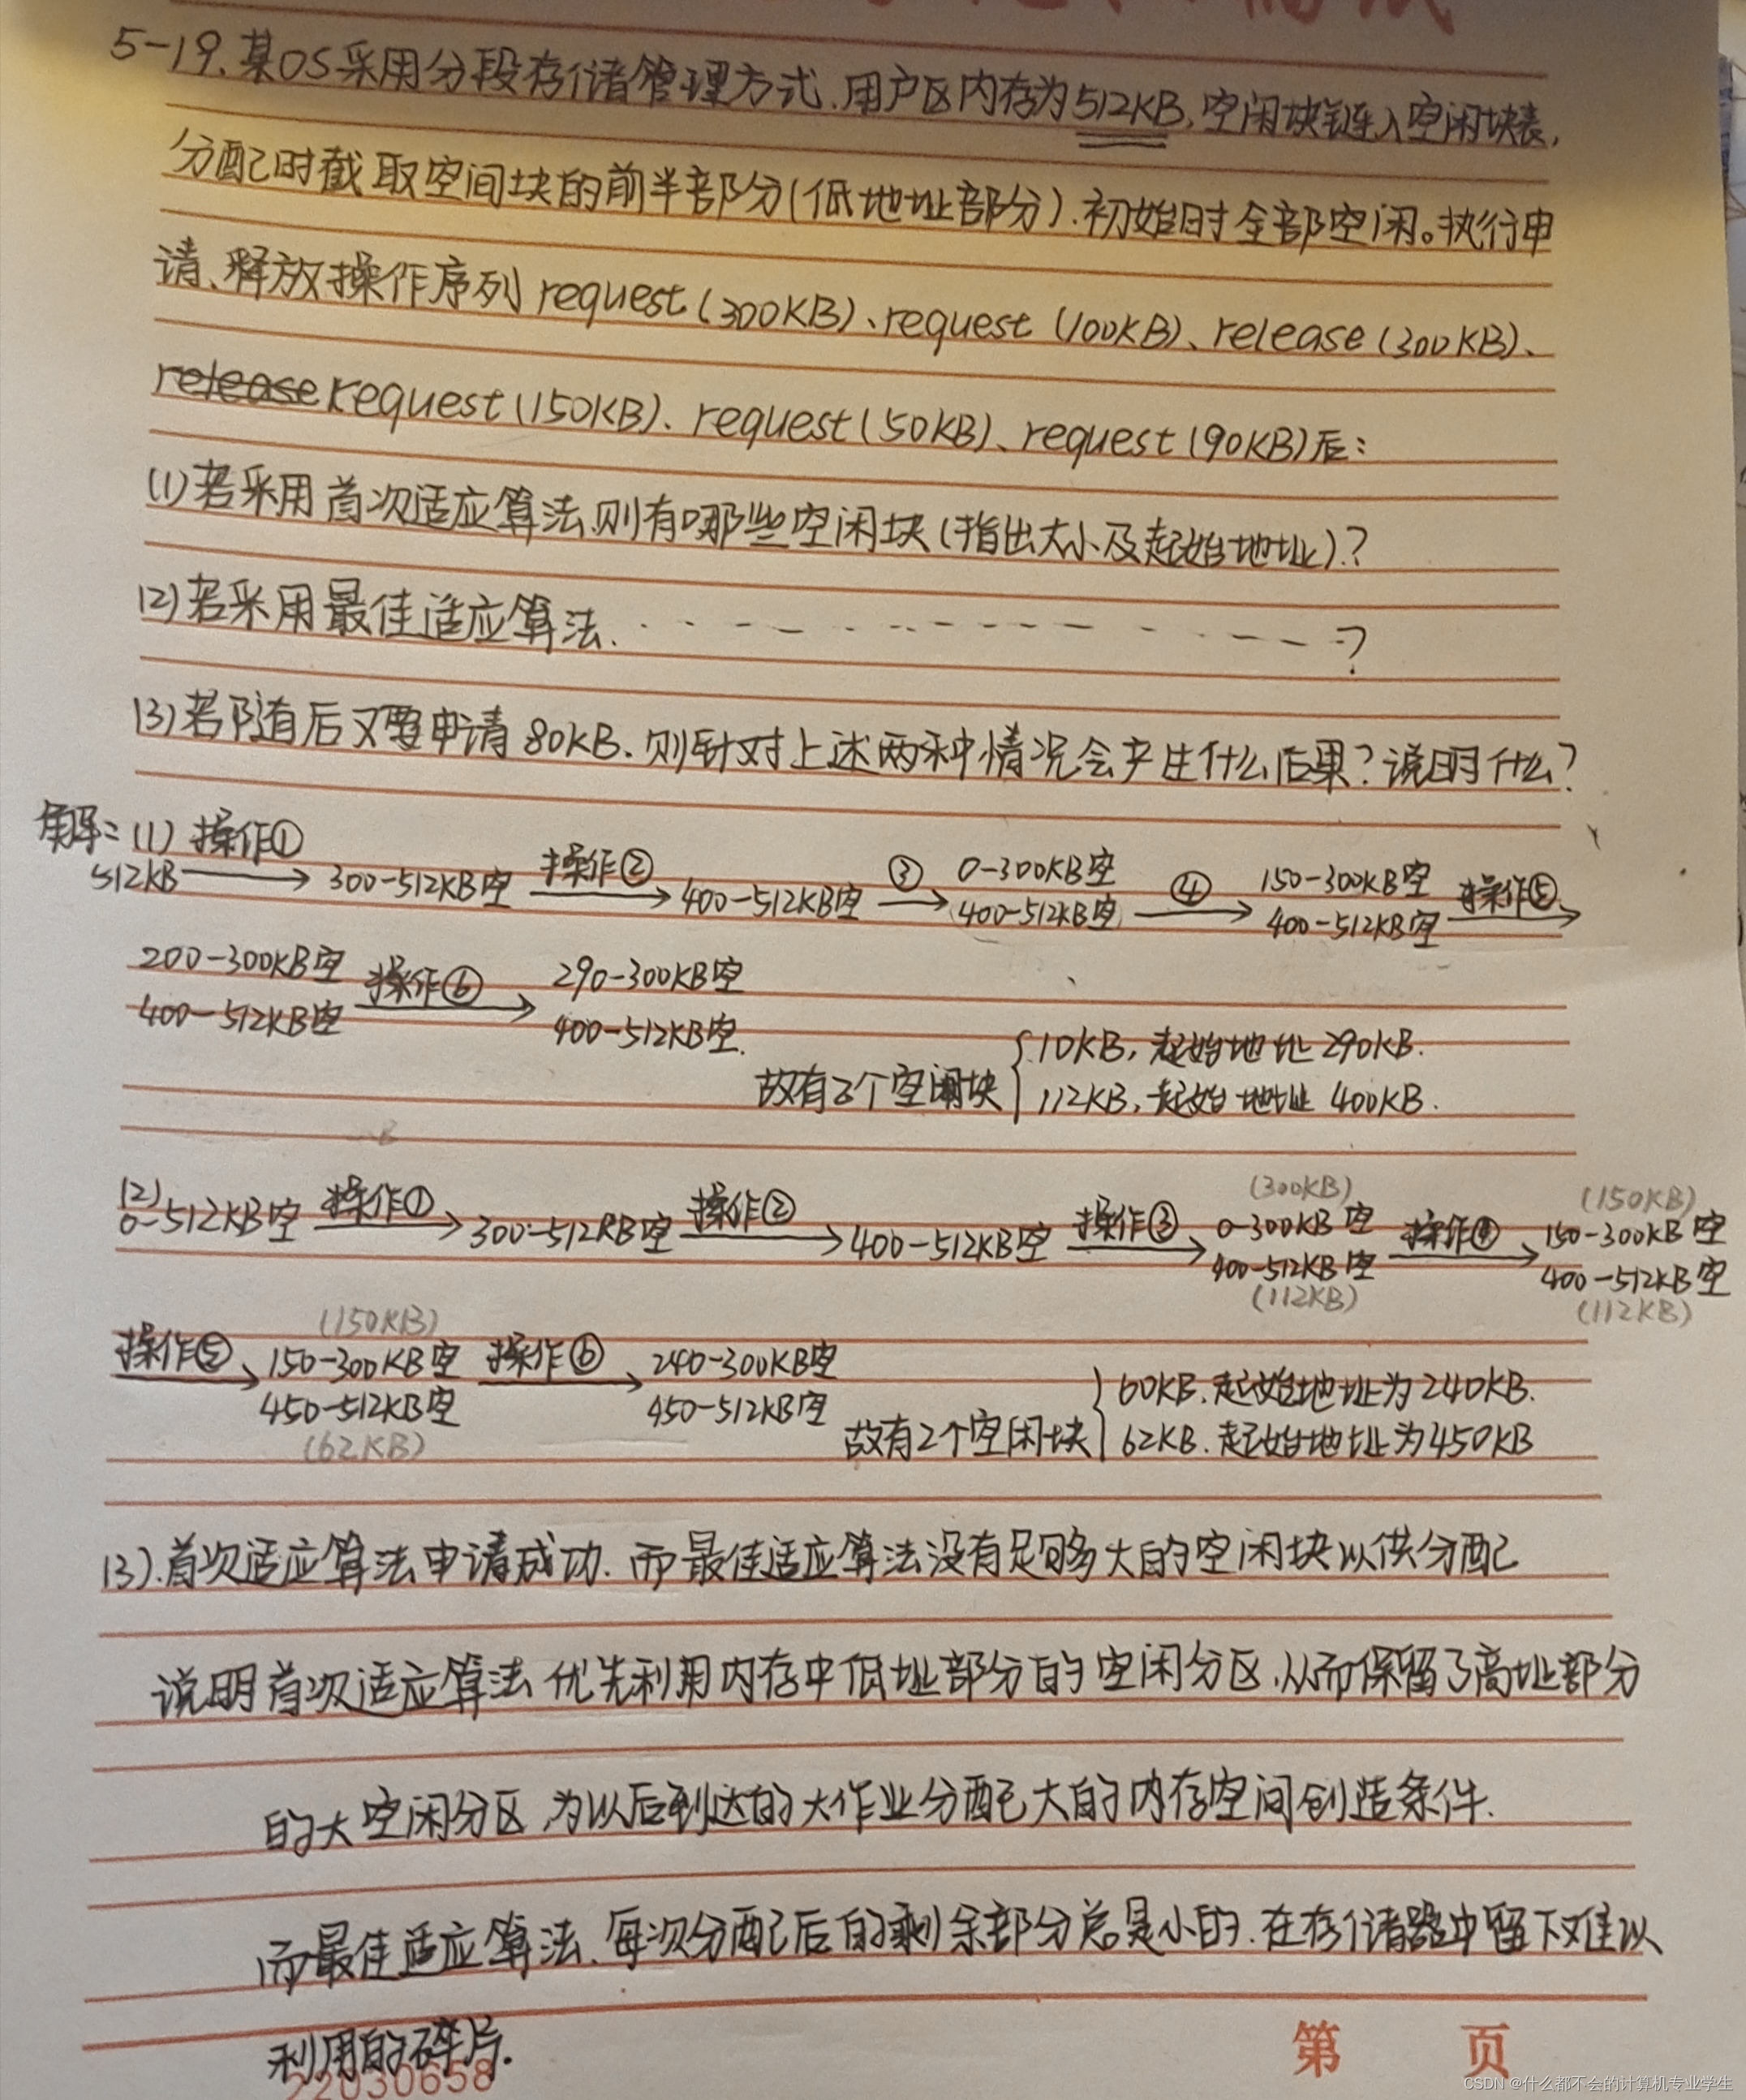 5-19、某OS采用分段存储管理方式.用户区内存为512KB,空闲块链入空闲块表,
分配时截取空间块的前半部分(低地址部分).初始时全部空闲。执行申
请、释放操作序列request(300KB)、request(100KB)、release(300KB)、
release request(150KB)、request(50KB)、request(90KB)后:
(1)若采用首次适应算法则有哪些空闲块(指出大小及起始地址)?
(2)若采用最佳适应算法. - - - - - - - - - - - ?
(3)若随后又要申请80KB.则针对上述两种情况会产生什么后果?说明什么?
解:(1) 操作①
512KB → 300-512KB空 操作② → 400-512KB空 ③ → 0-300KB空 400-512KB空 ④ → 150-300KB空 400-512KB空 操作⑤ →
200-300KB空 操作⑥ → 290-300KB空
400-512KB空 400-512KB空.
故有2个空闲块 { 10KB,起始地址290KB.
112KB,起始地址 400KB.
(2) (300KB) (150KB)
0-512KB空 操作① → 300-512KB空 操作② → 400-512KB空 操作③ → 0-300KB空 操作④ → 150-300KB空
400-512KB空 400-512KB空
(112KB) (112KB)
(150KB)
操作⑤ → 150-300KB空 操作⑥ → 240-300KB空
450-512KB空 450-512KB空
(62KB)
故有2个空闲块 } 60KB.起始地址为240KB.
62KB.起始地址为450KB
(3).首次适应算法申请成功.而最佳适应算法没有足够大的空闲块以供分配
说明首次适应算法优先利用内存中低址部分的空闲分区,从而保留了高址部分
的大空闲分区,为以后到达的大作业分配大的内存空间创造条件.
而最佳适应算法.每次分配后的剩余部分总是小的.在存储器中留下难以
利用的碎片.
第 页
22030658
CSDN @什么都不会的计算机专业学生